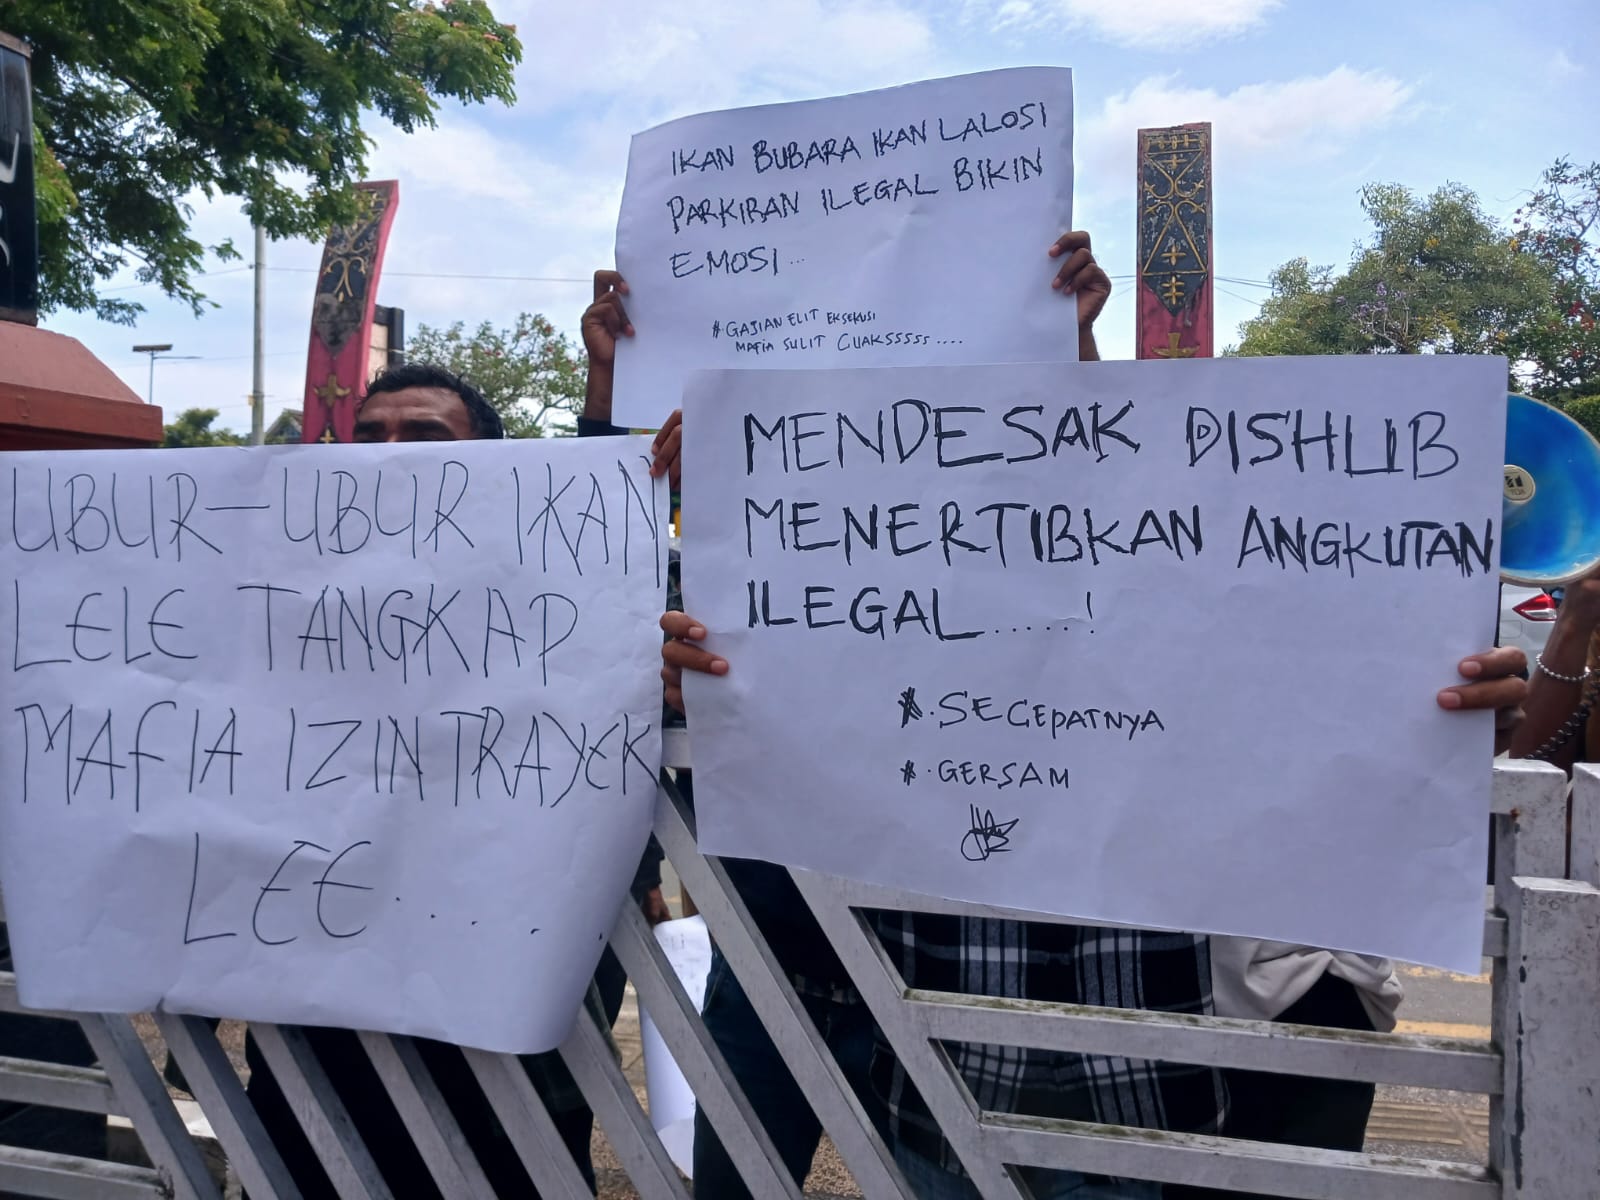 IKAN BUBARA IKAN LALOSI
PARKIRAN ILEGAL BIKIN
EMOSI...
#GAJIAN ELIT EKSEKUSI
MAFIA SULIT CUAKSSSSS....
UBUR-UBUR IKAN
LELE TANGKAP
MAFIA IZIN TRAYEK
LEE.....
MENDESAK DISHUB
MENERTIBKAN ANGKUTAN
ILEGAL.....!
#.SEGEPATNYA
#.GERSAM